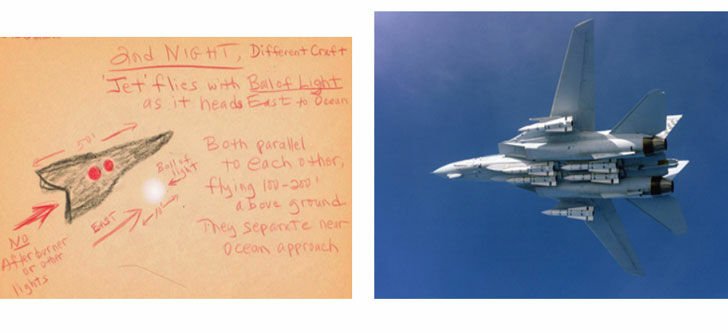 2nd NIGHT, Different Craft
'Jet' flies with Bal of Light
as it heads East to Ocean
50'
Both parallel
to each other,
flying 100-200'
above ground.
They separate near
Ocean approach
Ball of
light
10'
EAST
NO
Afterburner
or other
lights